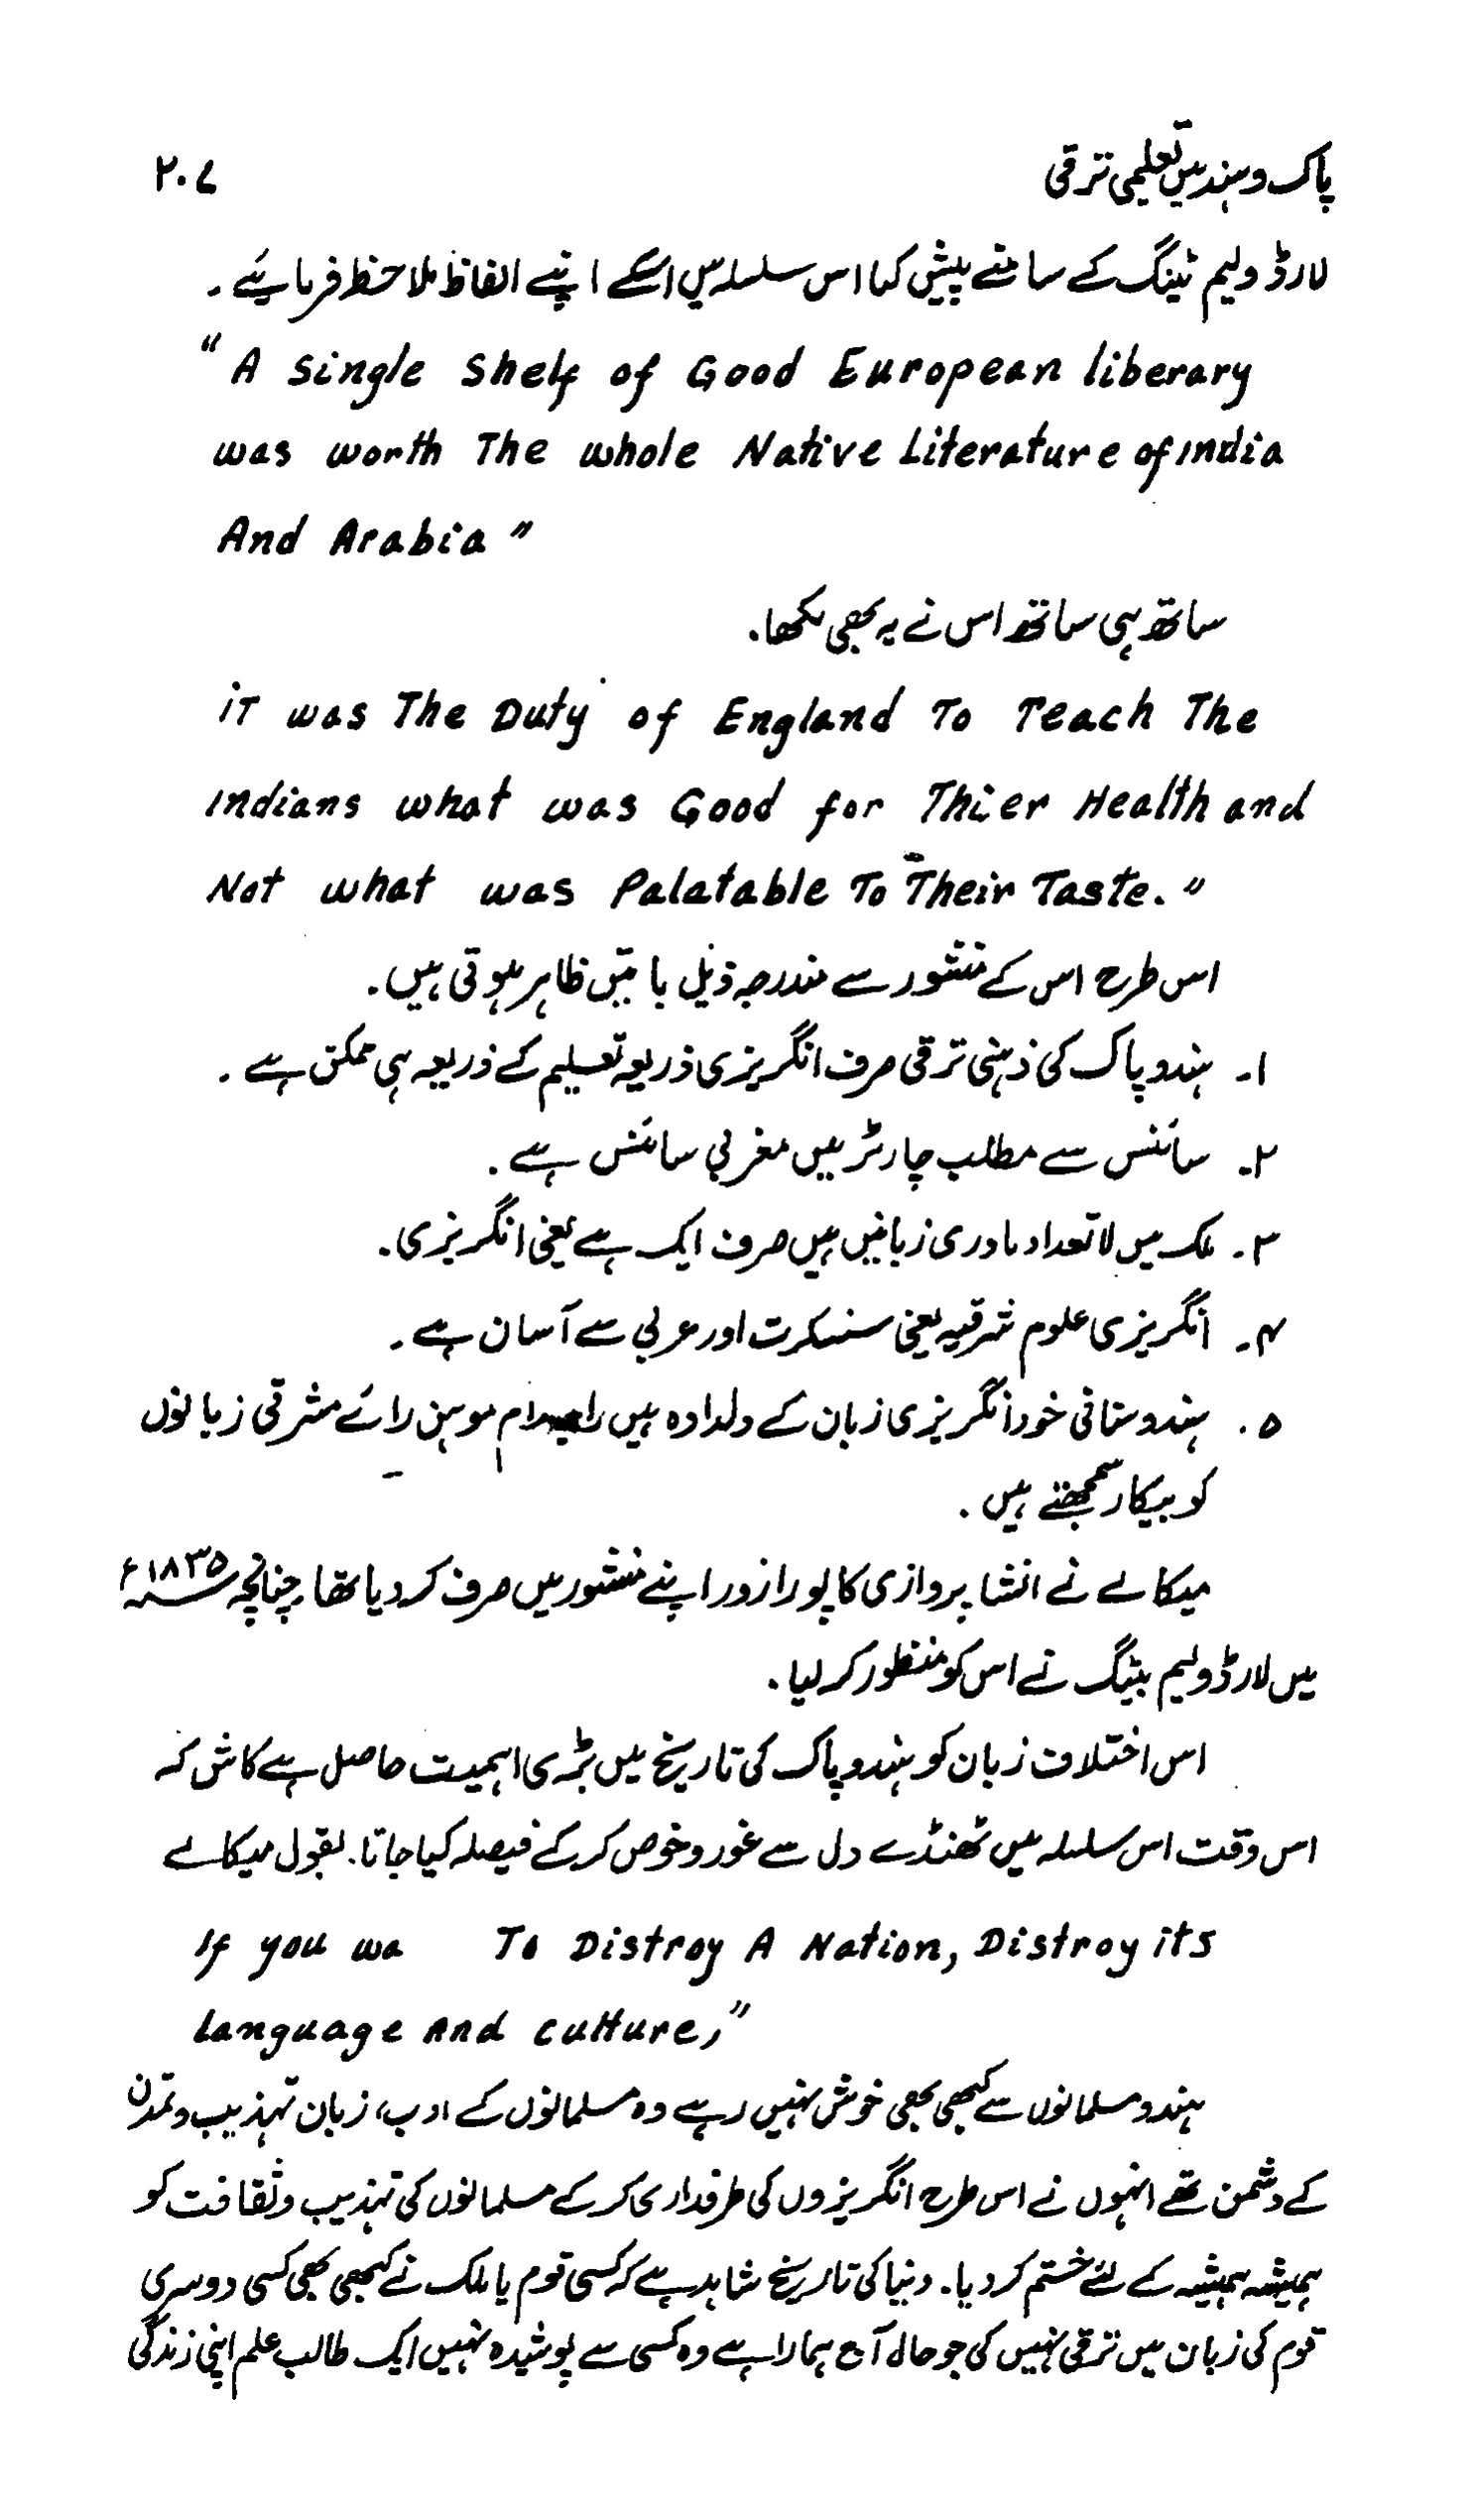 پاک و ہند میں تعلیمی ترقی ۲۰۷
لارڈ ولیم ٹینگ کے سامنے پیش کیا اس سلسلہ میں اسکے اپنے الفاظ ملاحظہ فرمایئے۔
"A single shelf of Good European liberary
was worth The whole Native Literature of india
And Arabia"
ساتھ ہی ساتھ اس نے یہ بھی لکھا۔
iT was The Duty of England To Teach The
indians what was Good for Thier Health and
Not what was Palatable To Their Taste."
اس طرح اس کے منشور سے مندرجہ ذیل باتیں ظاہر ہوتی ہیں۔
۱۔ ہندو پاک کی ذہنی ترقی صرف انگریزی ذریعہ تعلیم کے ذریعہ ہی ممکن ہے۔
۲۔ سائنس سے مطلب چارٹر میں مغربی سائنس ہے۔
۳۔ ملک میں لاتعداد مادری زبانیں ہیں صرف ایک ہے یعنی انگریزی۔
۴۔ انگریزی علوم شرقیہ یعنی سنسکرت اور عربی سے آسان ہے۔
۵۔ ہندوستانی خود انگریزی زبان کے دلدادہ ہیں راجہ رام موہن رائے مشرقی زبانوں
کو بیکار سمجھتے ہیں۔
میکالے نے انشا پردازی کا پورا زور اپنے منشور میں صرف کر دیا تھا چنانچہ ۱۸۳۵ء
میں لارڈ ولیم بیٹنگ نے اس کو منظور کر لیا۔
اس اختلاف زبان کو ہندو پاک کی تاریخ میں بڑی اہمیت حاصل ہے کاش کہ
اس وقت اس سلسلہ میں ٹھنڈے دل سے غور و خوص کر کے فیصلہ کیا جاتا۔ بقول میکالے
If you wa To Distroy A Nation, Distroy its
Language And culture,"
ہندو مسلمانوں سے کبھی بھی خوش نہیں رہے وہ مسلمانوں کے ادب، زبان تہذیب و تمدن
کے دشمن تھے انہوں نے اس طرح انگریزوں کی طرفداری کر کے مسلمانوں کی تہذیب و ثقافت کو
ہمیشہ ہمیشہ کے لئے ختم کر دیا۔ دنیا کی تاریخ شاہد ہے کہ کسی قوم یا ملک نے کبھی بھی کسی دوسری
قوم کی زبان میں ترقی نہیں کی جو حال آج ہمارا ہے وہ کسی سے پوشیدہ نہیں ایک طالب علم اپنی زندگی